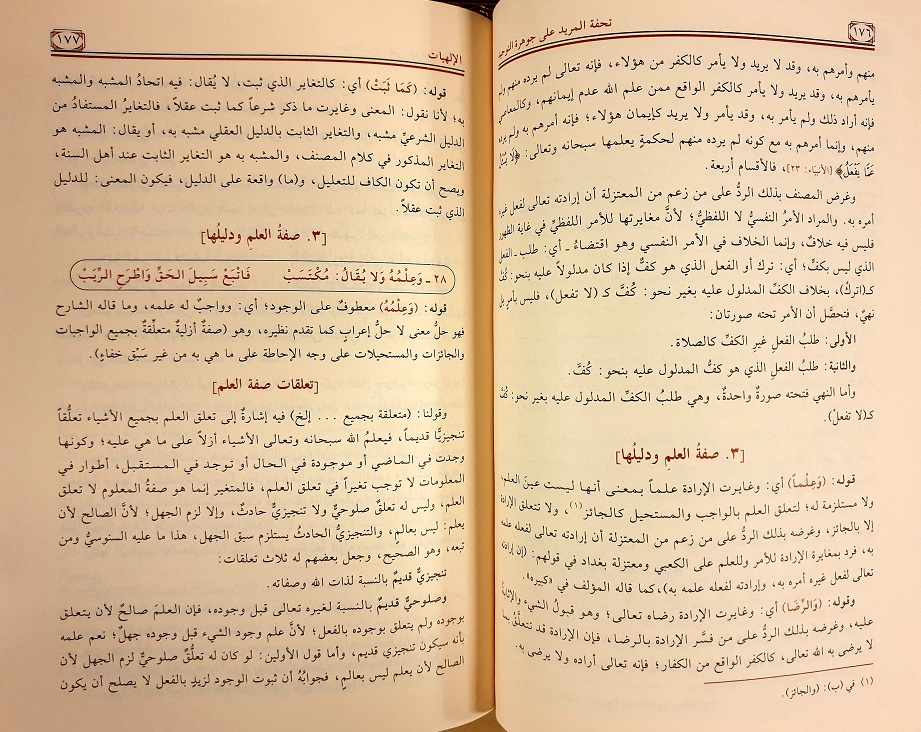 ١٧٦
تحفة المريد على جوهرة التوحيد
منهم وأمرهم به، وقد لا يريد ولا يأمر كالكفر من هؤلاء، فإنه تعالى لم يرده منهم ولم
يأمرهم به، وقد يريد ولا يأمر كالكفر الواقع ممن علم الله عدم إيمانهم، وكالمعاصي
فإنه أراد ذلك ولم يأمر به، وقد يأمر ولا يريد كإيمان هؤلاء؛ فإنه أمرهم به ولم يرده
منهم، وإنما أمرهم به مع كونه لم يرده منهم لحكمةٍ يعلمها سبحانه وتعالى: ﴿لَا يُسْأَلُ
عَمَّا يَفْعَلُ﴾ [الأنبياء: ٢٣]، فالأقسام أربعة.
وغرض المصنف بذلك الردُّ على من زعم من المعتزلة أن إرادته تعالى لفعل غيره
أمره به. والمراد الأمرُ النفسيُّ لا اللفظيُّ؛ لأنَّ مغايرتها للأمر اللفظيِّ في غاية الظهور
فليس فيه خلافٌ، وإنما الخلاف في الأمر النفسي وهو اقتضاءُ ـ أي: طلب ـ الفعل
الذي ليس بكفٍّ؛ أي: ترك أو الفعل الذي هو كفٌّ إذا كان مدلولاً عليه بنحو: كُفَّ
كـ(اترك)، بخلاف الكفِّ المدلول عليه بغير نحو: كُفَّ كـ (لا تفعل)، فليس بأمرٍ بل
نهيٌ، فتحصَّل أن الأمر تحته صورتان:
الأولى: طلبُ الفعلِ غيرِ الكفِّ كالصلاة.
والثانية: طلبُ الفعلِ الذي هو كفُّ المدلول عليه بنحو: كُفَّ.
وأما النهي فتحته صورةٌ واحدةٌ، وهي طلبُ الكفِّ المدلول عليه بغير نحو: كُفَّ
كـ(لا تفعلْ).
[٣. صفةُ العلمِ ودليلُها]
قوله: (وَعِلْماً) أي: وغايرت الإرادة علماً بمعنى أنها ليست عينَ العلم،
ولا مستلزمة له؛ لتعلق العلم بالواجب والمستحيل كالجائز(١)، ولا تتعلق الإرادة
إلا بالجائز، وغرضه بذلك الردُّ على من زعم من المعتزلة أن إرادته تعالى لفعله علمه
به، فرد بمغايرة الإرادة للأمر وللعلم على الكعبي ومعتزلة بغداد في قولهم: (إن إرادته
تعالى لفعل غيره أمره به، وإرادته لفعله علمه به)، كما قاله المؤلف في «كبيره».
وقوله: (وَالرِّضَا) أي: وغايرت الإرادة رضاه تعالى؛ وهو قبولُ الشيء والإثابةُ
عليه، وغرضه بذلك الردُّ على من فسَّر الإرادة بالرضا، فإن الإرادة قد تتعلَّقُ بما
لا يرضى به الله تعالى، كالكفر الواقع من الكفار؛ فإنه تعالى أراده ولا يرضى به.
(١) في (ب): (والجائز).
١٧٧
الإلهيات
قوله: (كَمَا ثَبَتْ) أي: كالتغاير الذي ثبت، لا يُقال: فيه اتحادُ المشبه والمشبه
به؛ لأنا نقول: المعنى وغايرت ما ذكر شرعاً كما ثبت عقلاً، فالتغايرُ المستفادُ من
الدليل الشرعيِّ مشبه، والتغاير الثابت بالدليل العقلي مشبه به، أو يقال: المشبه هو
التغاير المذكور في كلام المصنف، والمشبه به هو التغاير الثابت عند أهل السنة،
ويصح أن تكون الكاف للتعليل، و(ما) واقعة على الدليل، فيكون المعنى: للدليل
الذي ثبت عقلاً.
[٣. صفةُ العلمِ ودليلُها]
٢٨ ـ وَعِلْمُهُ وَلا يُقَالُ: مُكْتَسَبْ فَاتْبَعْ سَبِيلَ الحَقِّ وَاطْرَحِ الرِّيَبْ
قوله: (وَعِلْمُهُ) معطوفٌ على الوجود؛ أي: وواجبٌ له علمه، وما قاله الشارح
فهو حلُّ معنى لا حلُّ إعرابٍ كما تقدم نظيره، وهو (صفةٌ أزليةٌ متعلِّقةٌ بجميع الواجبات
والجائزات والمستحيلات على وجه الإحاطة على ما هي به من غير سَبْق خفاءٍ).
[تعلقات صفة العلم]
وقولنا: (متعلقة بجميع ... إلخ) فيه إشارةٌ إلى تعلق العلم بجميع الأشياء تعلُّقاً
تنجيزيًّا قديماً، فيعلمُ الله سبحانه وتعالى الأشياء أزلاً على ما هي عليه؛ وكونها
وجدت في الماضي أو موجودة في الحال أو توجد في المستقبل، أطوار في
المعلومات لا توجب تغيراً في تعلق العلم، فالمتغير إنما هو صفةُ المعلوم لا تعلق
العلم، وليس له تعلقٌ صلوحيٌّ ولا تنجيزيٌّ حادثٌ، وإلا لزم الجهل؛ لأنَّ الصالح لأن
يعلم: ليس بعالمٍ، والتنجيزيُّ الحادثُ يستلزم سبق الجهل، هذا ما عليه السنوسيُّ ومن
تبعه، وهو الصحيح، وجعل بعضهم له ثلاث تعلقات:
تنجيزيٌّ قديمٌ بالنسبة لذات الله وصفاته.
وصلوحيٌّ قديمٌ بالنسبة لغيره تعالى قبل وجوده، فإن العلمَ صالحٌ لأن يتعلق
بوجوده ولم يتعلق بوجوده بالفعل؛ لأنَّ علم وجود الشيء قبل وجوده جهلٌ؛ نعم علمه
بأنه سيكون تنجيزي قديم، وأما قول الأولين: لو كان له تعلُّقٌ صلوحيٌّ لزم الجهل لأن
الصالح لأن يعلم ليس بعالمٍ، فجوابُهُ أن ثبوت الوجود لزيدٍ بالفعل لا يصلح أن يكون